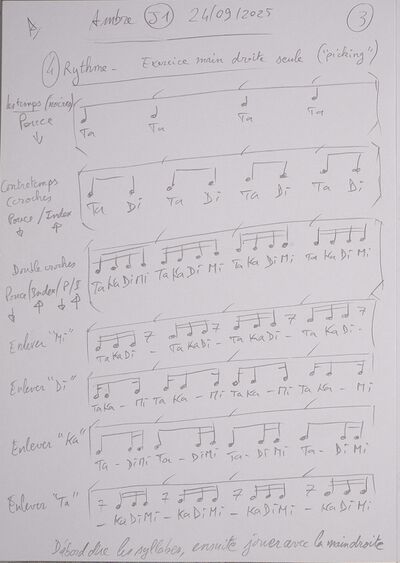 Ambre S1 24/09/2025 3
4 Rythme - Exercice main droite seule ("picking")
les temps (noires)
Pouce
Ta Ta Ta Ta
Contretemps
Croches
Pouce / Index
Ta Di Ta Di Ta Di Ta Di
Double croches
Pouce/Index/P/I
Ta Ka Di Mi Ta Ka Di Mi Ta Ka Di Mi Ta Ka Di Mi
Enlever "Mi"
Ta Ka Di - Ta Ka Di - Ta Ka Di - Ta Ka Di -
Enlever "Di"
Ta Ka - Mi Ta Ka - Mi Ta Ka - Mi Ta Ka - Mi
Enlever "Ka"
Ta - Di Mi Ta - Di Mi Ta - Di Mi Ta - Di Mi
Enlever "Ta"
- Ka Di Mi - Ka Di Mi - Ka Di Mi - Ka Di Mi
D'abord dire les syllabes, ensuite jouer avec la main droite